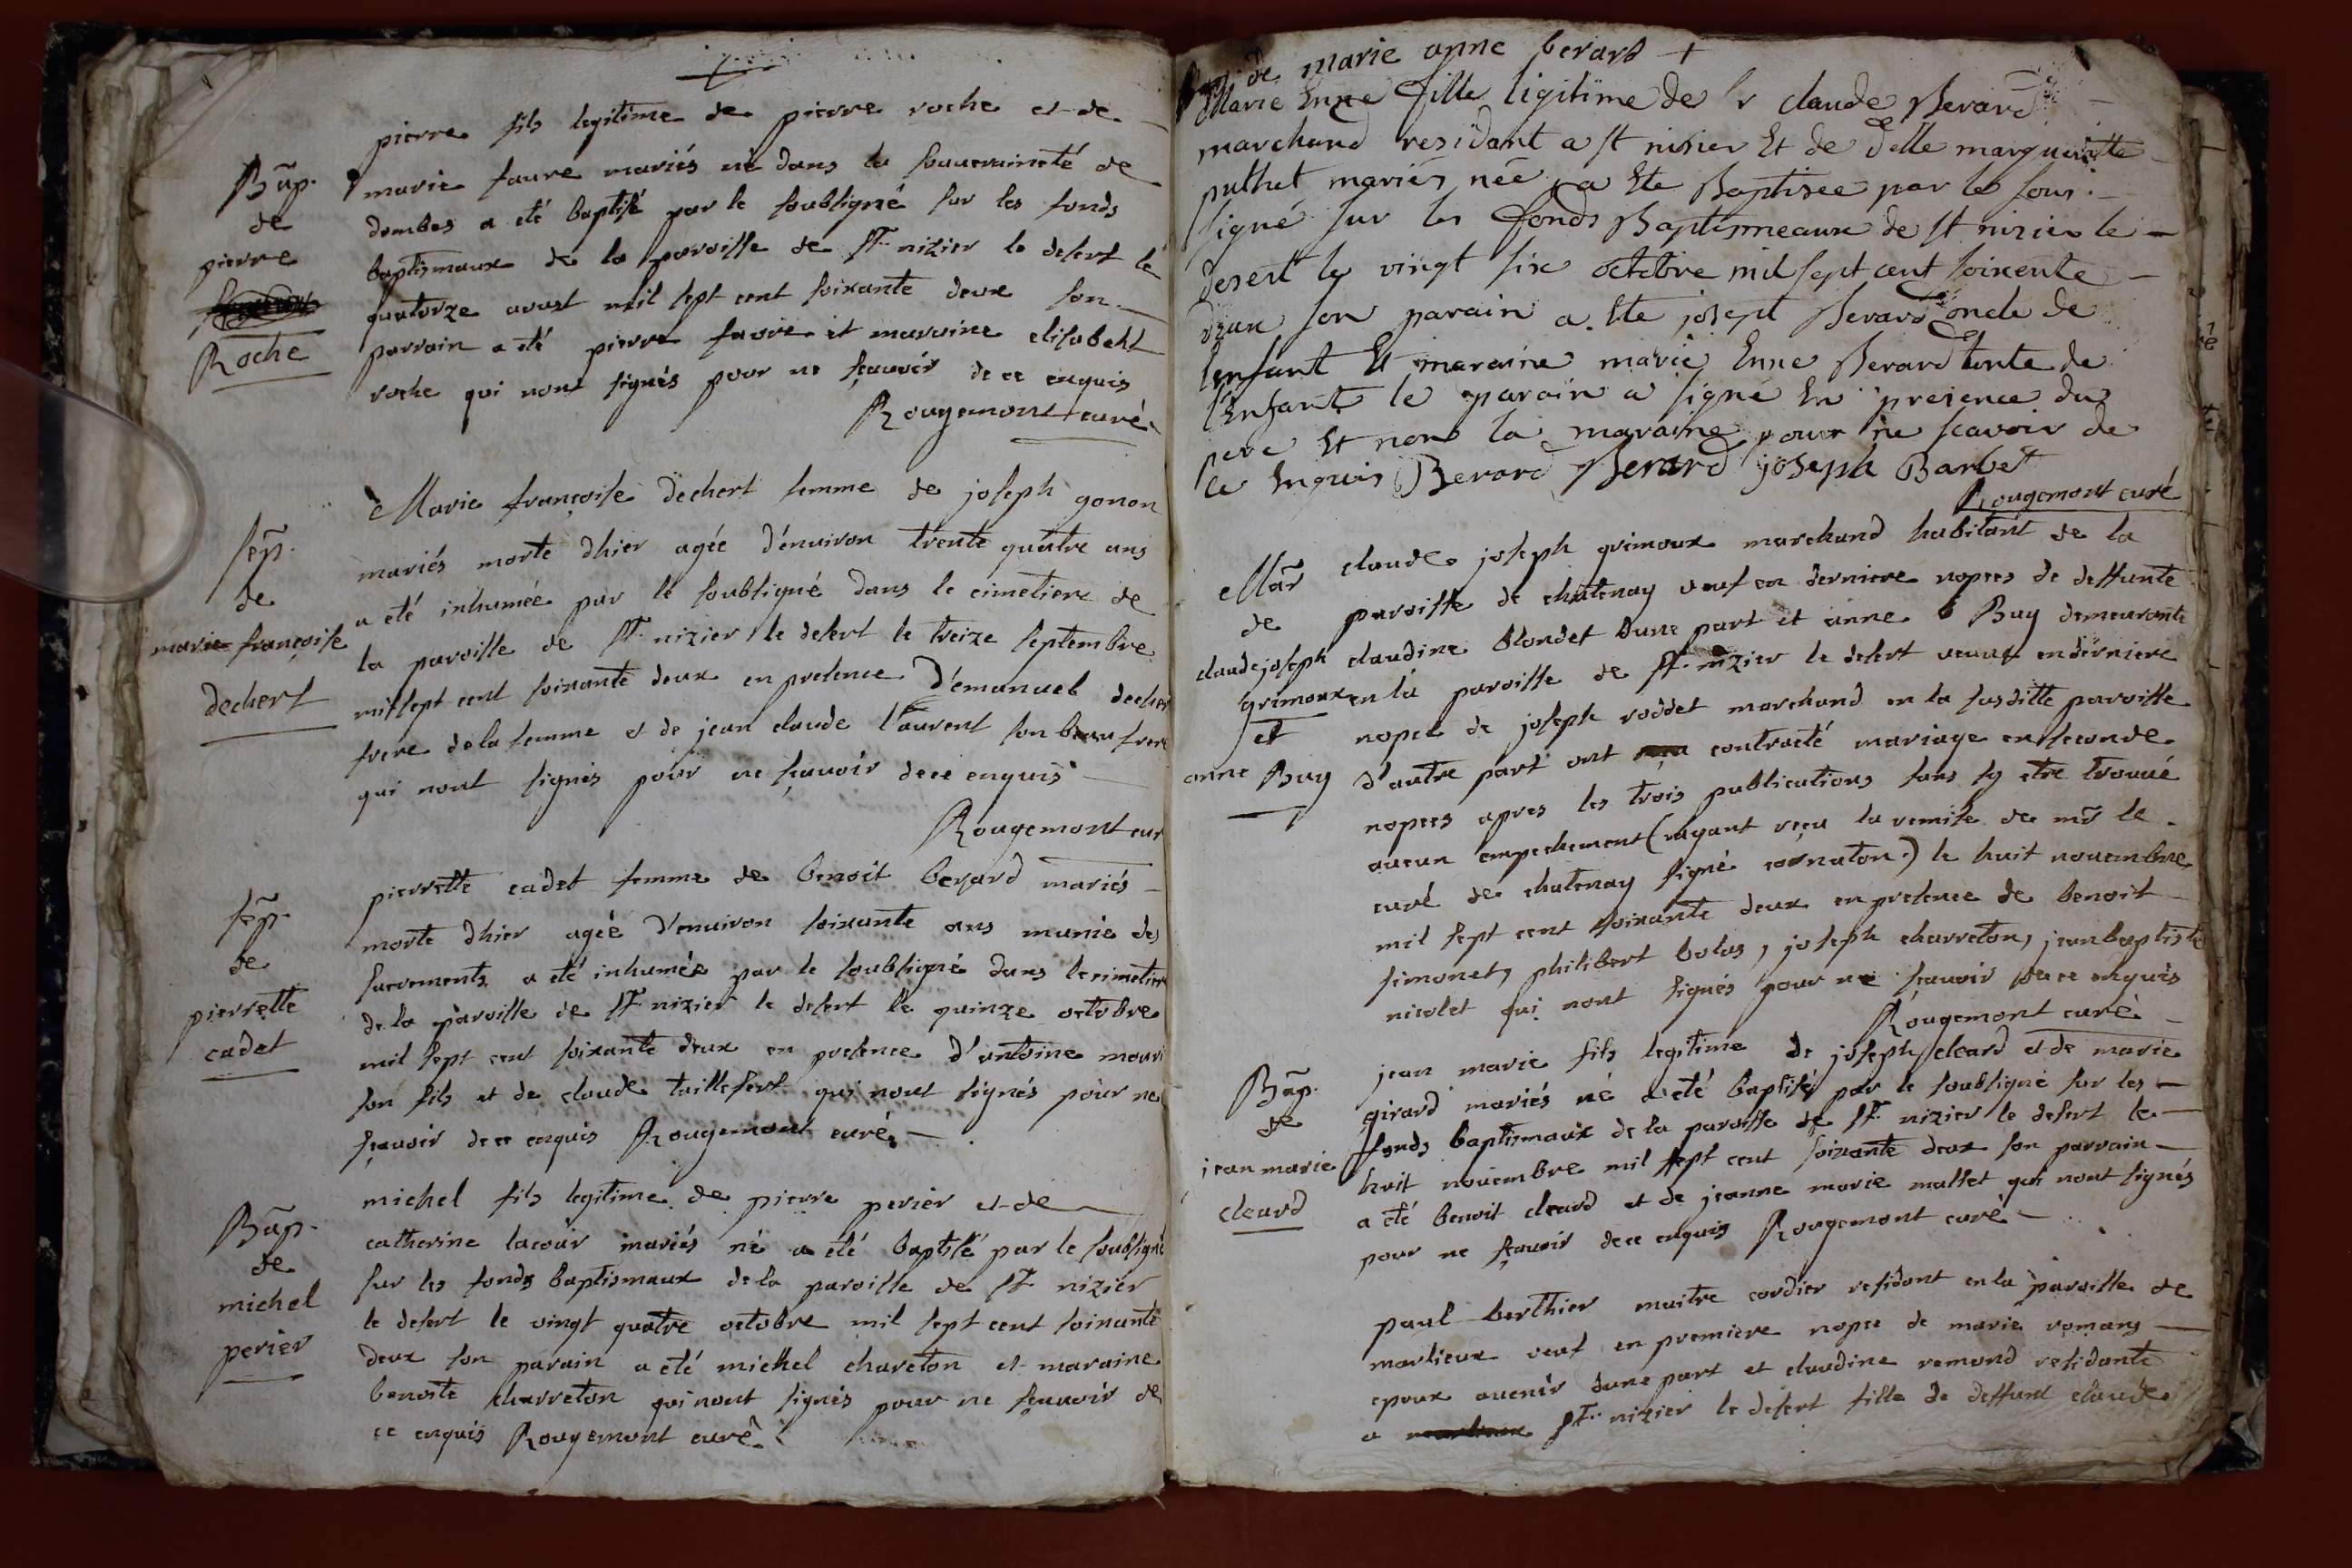 Bap.
de
pierre
Roche
pierre fils legitime de pierre roche et de
marie faure mariés né dans la souveraineté de
dombes a eté baptisé par le soubsigné sur les fonds
baptismaux de la paroisse de st. nizier le desert le
quatorze aoust mil sept cent soixante deux son
parrain a eté pierre favre et maraine elisabeht
roche qui nont signés pour ne sçauoir de ce enquis
Rougemont curé
sep.
de
marie françoise
dechert
Marie françoise dechert femme de joseph gonon
mariés morte dhier agée d'enuiron trente quatre ans
a eté inhumée par le soubsigné dans le cimetiere de
la paroisse de st. nizier le desert le treize septembre
mil sept cent soixante deux en presence d'emanuel decher
frere de la femme et de jean claude laurent son beau frere
qui nont signés pour ne sçauoir de ce enquis
Rougemont cur
sep.
de
pierrette
cadet
pierrette cadet femme de benoit berard mariés
morte dhier agée d'enuiron soixante ans munie des
sacrements a eté inhumée par le soubsigné dans le cimetiere
de la paroisse de st. nizier le desert le quinze octobre
mil sept cent soixante deux en presence d'antoine mouri
son fils et de claude taillefert qui nont signés pour ne
sçauoir de ce enquis Rougemont curé
Bap.
de
michel
perier
michel fils legitime de pierre perier et de
catherine lacour mariés né a eté baptisé par le soubsigné
sur les fonds baptismaux de la paroisse de st nizier
le desert le vingt quatre octobre mil sept cent soixante
deux son parain a eté michel chareton et maraine
benoite charreton qui nont signés pour ne sçauoir de
ce enquis Rougemont curé
de marie anne berard +
Marie Enne fille ligitime de sr claude Berard
marchand residant a st nisier Et de delle margueritte
puthet mariés née a Ete Baptisee par le sous
signé sur les fonds Baptismeaux de st nizier le
desert le vingt six octobre mil sept cent soixente
deux son parain a Ete josept Berard oncle de
lenfant Et maraine marie Enne Berard tente de
l'Enfant le parain a signé En presence du
pere Et non la maraine pour ne scavoir de
ce Enquis Berard Berard joseph Barbet
Rougemont curé
Mar
de
claude joseph
grimoux
et
anne Buy
claude joseph grimoux marchand habitant de la
paroisse de chatenay veuf en derniere nopces de deffunte
claudine blondet dune part et anne Buy demeurante
en la paroisse de st. nizier le desert veuue en derniere
nopce de joseph roddet marchand en la susditte paroisse
d'autre part ont contracté mariage en seconde
nopces apres les trois publications sans sy etre trouué
aucun empechement (ayant reçu la remise de mr le
curé de chatenay signé cornaton) le huit nouembre
mil sept cent soixante deux en presence de benoit
simonet, philibert bolas, joseph charreton, jean baptiste
nicolet qui nont signés pour ne sçauoir de ce enquis
Rougemont curé
Bap.
de
jean marie
cleard
jean marie fils legitime de joseph cleard et de marie
girard mariés né a eté baptisé par le soubsigné sur les
fonds baptismaux de la paroisse de st. nizier le desert le
huit nouembre mil sept cent soixante deux son parrain
a eté benoit cleard et de jeanne marie mallet qui nont signés
pour ne sçauoir de ce enquis Rougemont curé
paul berthier maitre cordier residant en la paroisse de
marlieux veuf en premiere nopce de marie romans
epoux auenir dune part et claudine remond residante
a st. nizier le desert fille de deffunt claude